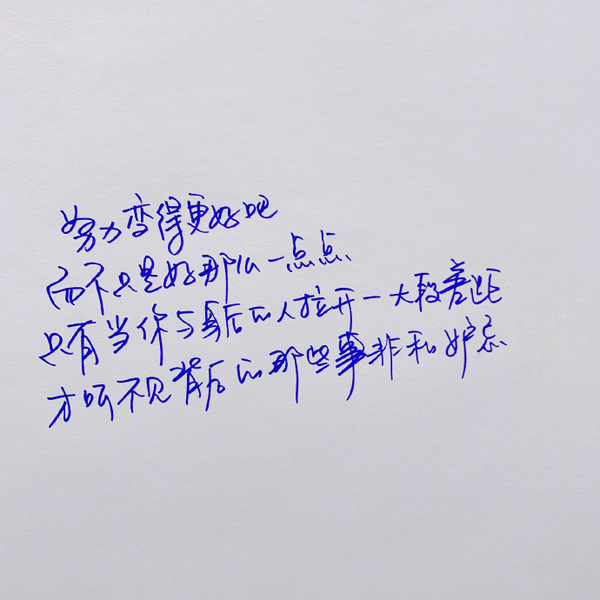 努力变得更好吧
而不只是好那么一点点
只有当你与身后的人拉开一大段差距
才听不见背后的那些事非和妒忌